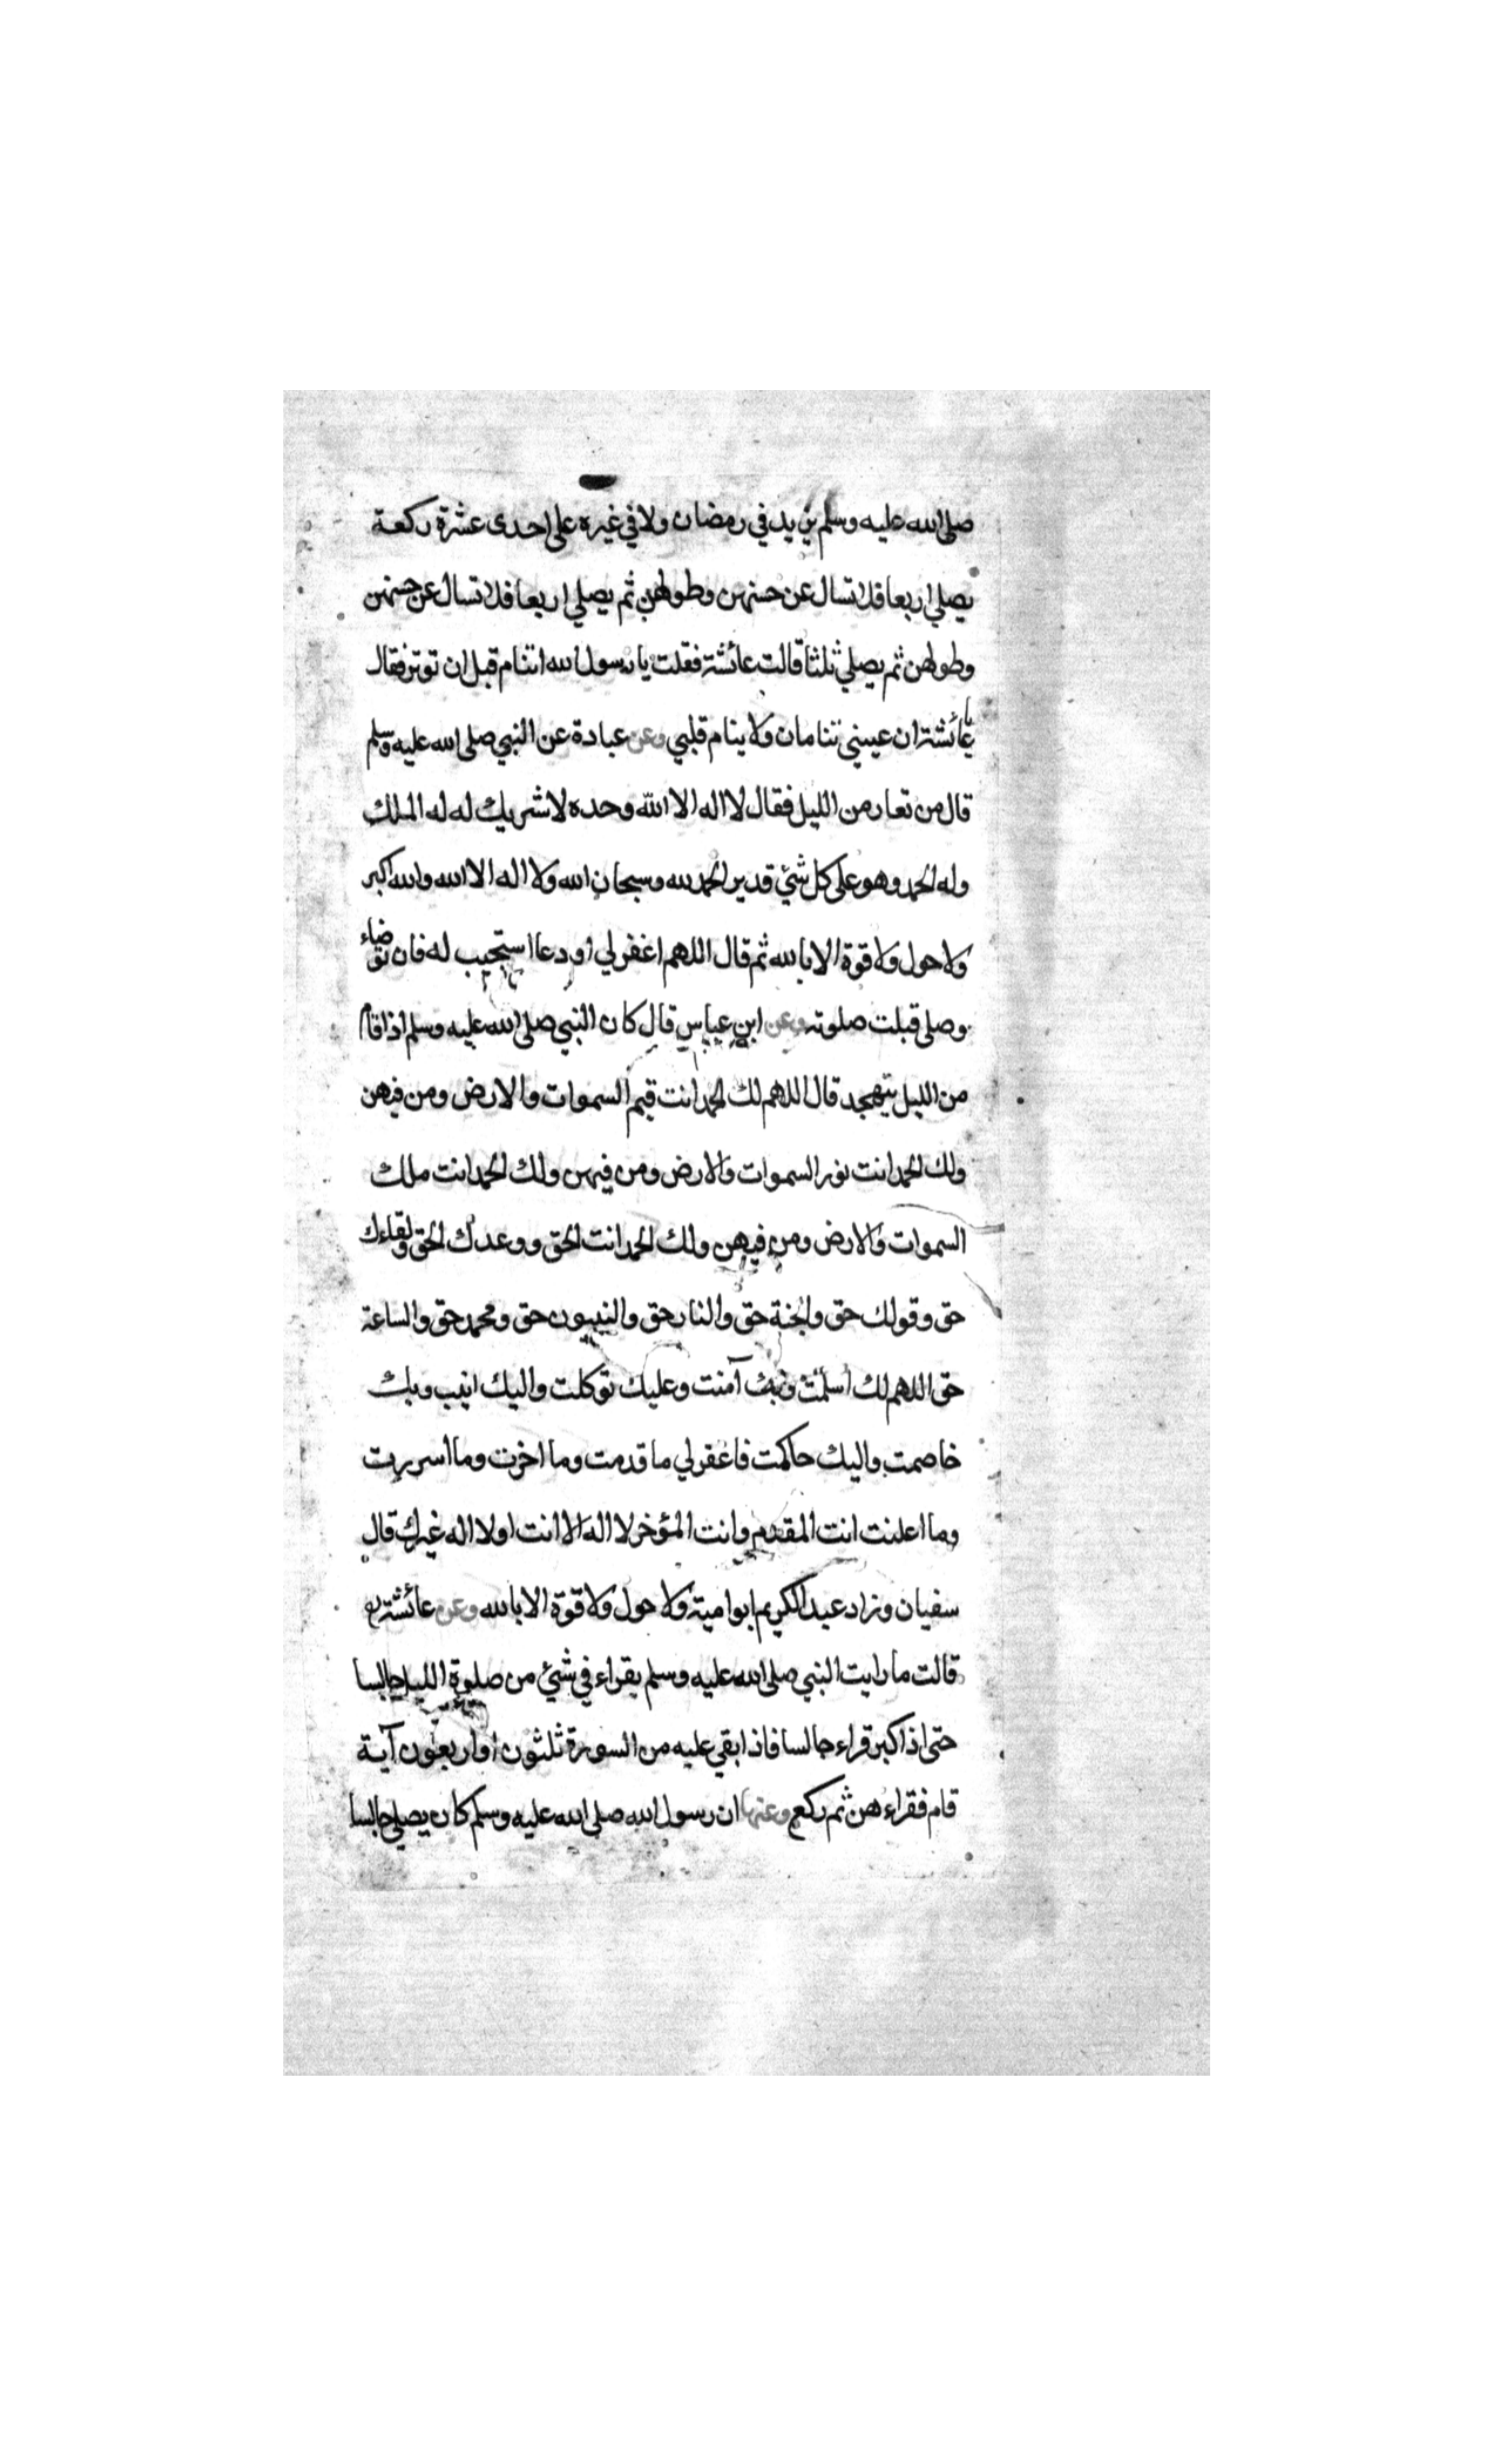 صلى الله عليه وسلم يزيد في رمضان ولا في غيره على احدى عشرة ركعة
يصلي اربعا فلا تسال عن حسنهن وطولهن ثم يصلي اربعا فلا تسال عن حسنهن
وطولهن ثم يصلي ثلثا قالت عائشة فقلت يا رسول الله اتنام قبل ان توتر فقال
يا عائشة ان عيني تنامان ولا ينام قلبي وعن عبادة عن النبي صلى الله عليه وسلم
قال من تعار من الليل فقال لا اله الا الله وحده لا شريك له له الملك
وله الحمد وهو على كل شئ قدير الحمد لله وسبحان الله ولا اله الا الله والله اكبر
ولا حول ولا قوة الا بالله ثم قال اللهم اغفر لي او دعا استجيب له فان توضاء
وصلى قبلت صلوته وعن ابن عباس قال كان النبي صلى الله عليه وسلم اذا قام
من الليل يتهجد قال اللهم لك الحمد انت قيم السموات والارض ومن فيهن
ولك الحمد انت نور السموات والارض ومن فيهن ولك الحمد انت ملك
السموات والارض ومن فيهن ولك الحمد انت الحق ووعدك الحق ولقاءك
حق وقولك حق والجنة حق والنار حق والنبيون حق ومحمد حق والساعة
حق اللهم لك اسلمت وبك آمنت وعليك توكلت واليك انيب وبك
خاصمت واليك حاكمت فاغفر لي ما قدمت وما اخرت وما اسررت
وما اعلنت انت المقدم وانت المؤخر لا اله الا انت او لا اله غيرك قال
سفيان وزاد عبد الكريم ابو امية ولا حول ولا قوة الا بالله وعن عائشة رض
قالت ما رايت النبي صلى الله عليه وسلم يقراء في شئ من صلوة الليل جالسا
حتى اذا كبر قراء جالسا فاذا بقي عليه من السورة ثلثون او اربعون آية
قام فقراء هن ثم ركع وعنها ان رسول الله صلى الله عليه وسلم كان يصلي جالسا